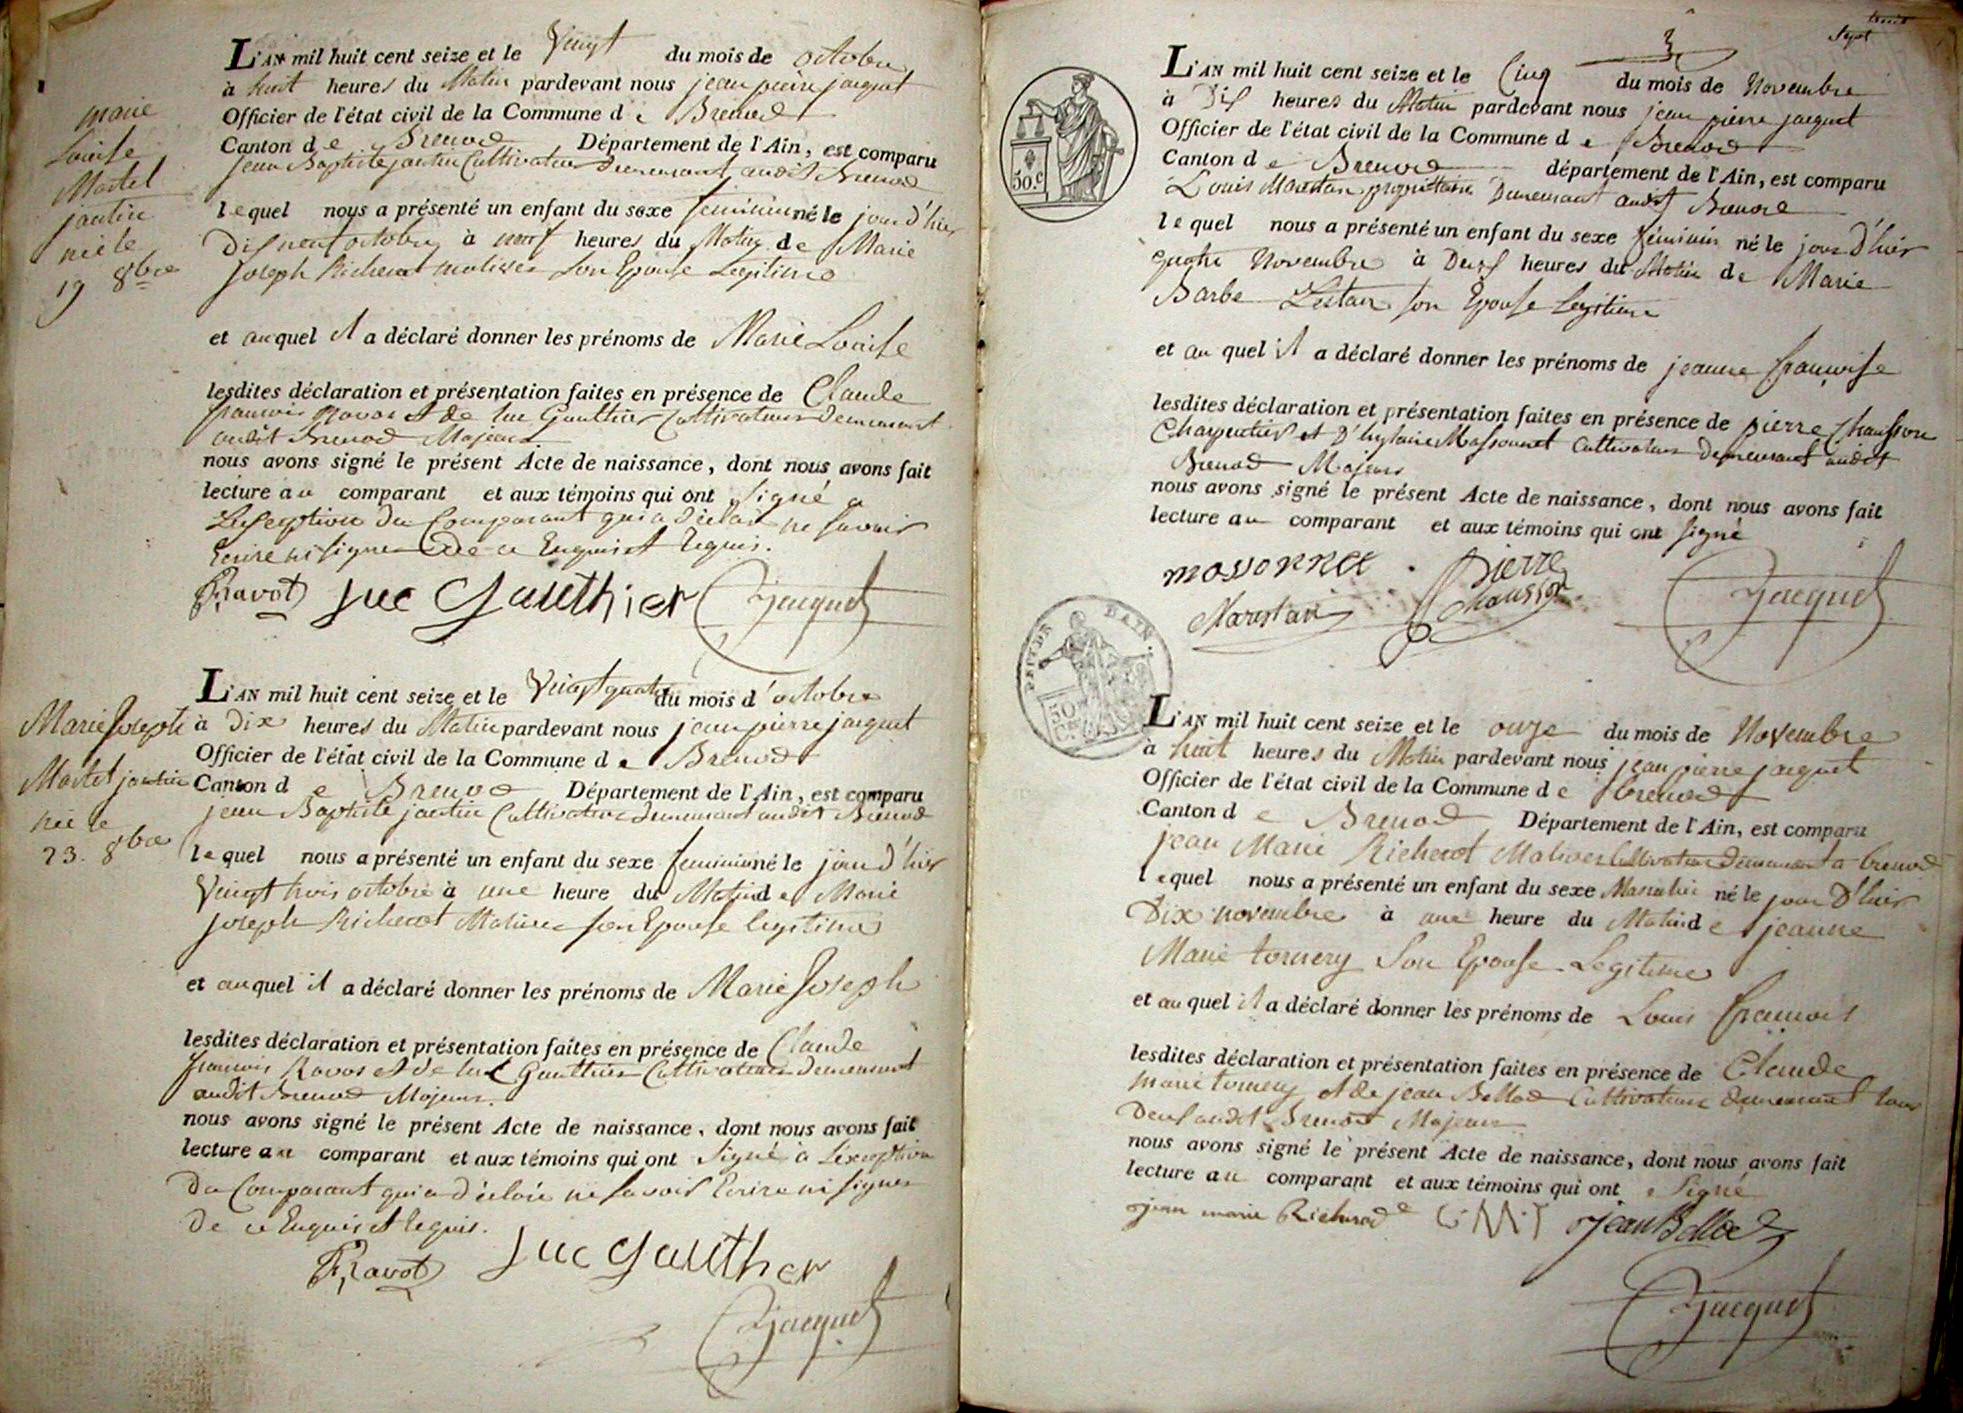 L'AN mil huit cent seize et le Vingt du mois de octobre
à huit heures du Matin pardevant nous jean pierre jacquet
Officier de l'état civil de la Commune d e Brenod
Canton d e Brenod Département de l'Ain, est comparu
jean Baptiste jantin Cultivateur Demeurant audit Brenod
lequel nous a présenté un enfant du sexe feminin né le jour d'hier
Dix neuf octobre à neuf heures du Matin de Marie
Joseph Richerot molivier Son Epouse Legitime
et auquel il a déclaré donner les prénoms de Marie Louise
lesdites déclaration et présentation faites en présence de Claude
francois Ravot et de luc Gauthier Cultivateurs Demeurant
audit Brenod Majeurs
nous avons signé le présent Acte de naissance, dont nous avons fait
lecture au comparant et aux témoins qui ont Signé a
L'exception du Comparant qui a déclaré ne savoir
Ecrire ni signer De ce Enquis et Requis.
Ravot luc Gauthier Jacquet
marie
Louise
Martel
jantin
née le
19 8bre
L'AN mil huit cent seize et le Vingt quatre du mois d'octobre
à Dix heures du Matin pardevant nous jean pierre jacquet
Officier de l'état civil de la Commune d e Brenod
Canton d e Brenod Département de l'Ain, est comparu
jean Baptiste jantin Cultivateur demeurant audit Brenod
lequel nous a présenté un enfant du sexe feminin né le jour d'hier
Vingt trois octobre à une heure du Matin d e Marie
joseph Richerot son Epouse legitime
et auquel il a déclaré donner les prénoms de Marie Joseph
lesdites déclaration et présentation faites en présence de Claude
francois Ravot et de luc Gauthier Cultivateurs demeurant
audit Brenod Majeurs.
nous avons signé le présent Acte de naissance, dont nous avons fait
lecture au comparant et aux témoins qui ont Signé à L'exception
Du Comparant qui a déclaré ne Savoir Ecrire ni signer
De ce Enquis et Requis.
Ravot luc gauthier
Jacquet
Marie Joseph
Martel jantin
née le
23. 8bre
Sept
50.c
L'AN mil huit cent seize et le Cinq du mois de Novembre
à Dix heures du Matin pardevant nous jean pierre jacquet
Officier de l'état civil de la Commune d e Brenod
Canton d e Brenod département de l'Ain, est comparu
Louis Marestan propriétaire Demeurant audit Brenod
lequel nous a présenté un enfant du sexe féminin né le jour D'hier
quatre Novembre à Deux heures du Matin de Marie
Barbe son Epouse Legitime
et au quel il a déclaré donner les prénoms de jeanne françoise
lesdites déclaration et présentation faites en présence de pierre Chausson
Charpentier et D'hylaire Massonnet Cultivateur Demeurant audit
Brenod Majeurs
nous avons signé le présent Acte de naissance, dont nous avons fait
lecture au comparant et aux témoins qui ont signé
mossonnet Pierre
Marestan Chausson Jacquet
L'AN mil huit cent seize et le onze du mois de Novembre
à huit heures du Matin pardevant nous jean pierre jacquet
Officier de l'état civil de la Commune d e Brenod
Canton d e Brenod Département de l'Ain, est comparu
jean Marie Richerot Cultivateur demeurant a brenod
lequel nous a présenté un enfant du sexe Masculin né le jour D'hier
Dix novembre à une heure du Matin d e jeanne
Marie tornery Son Epouse Legitime
et au quel il a déclaré donner les prénoms de Louis francois
lesdites déclaration et présentation faites en présence de Claude
marie tornery et de jean Bellod Cultivateurs demeurant tous
Deux audit Brenod Majeurs
nous avons signé le présent Acte de naissance, dont nous avons fait
lecture au comparant et aux témoins qui ont Signé
jean marie Richerod CMT jean Bellod
Jacquet